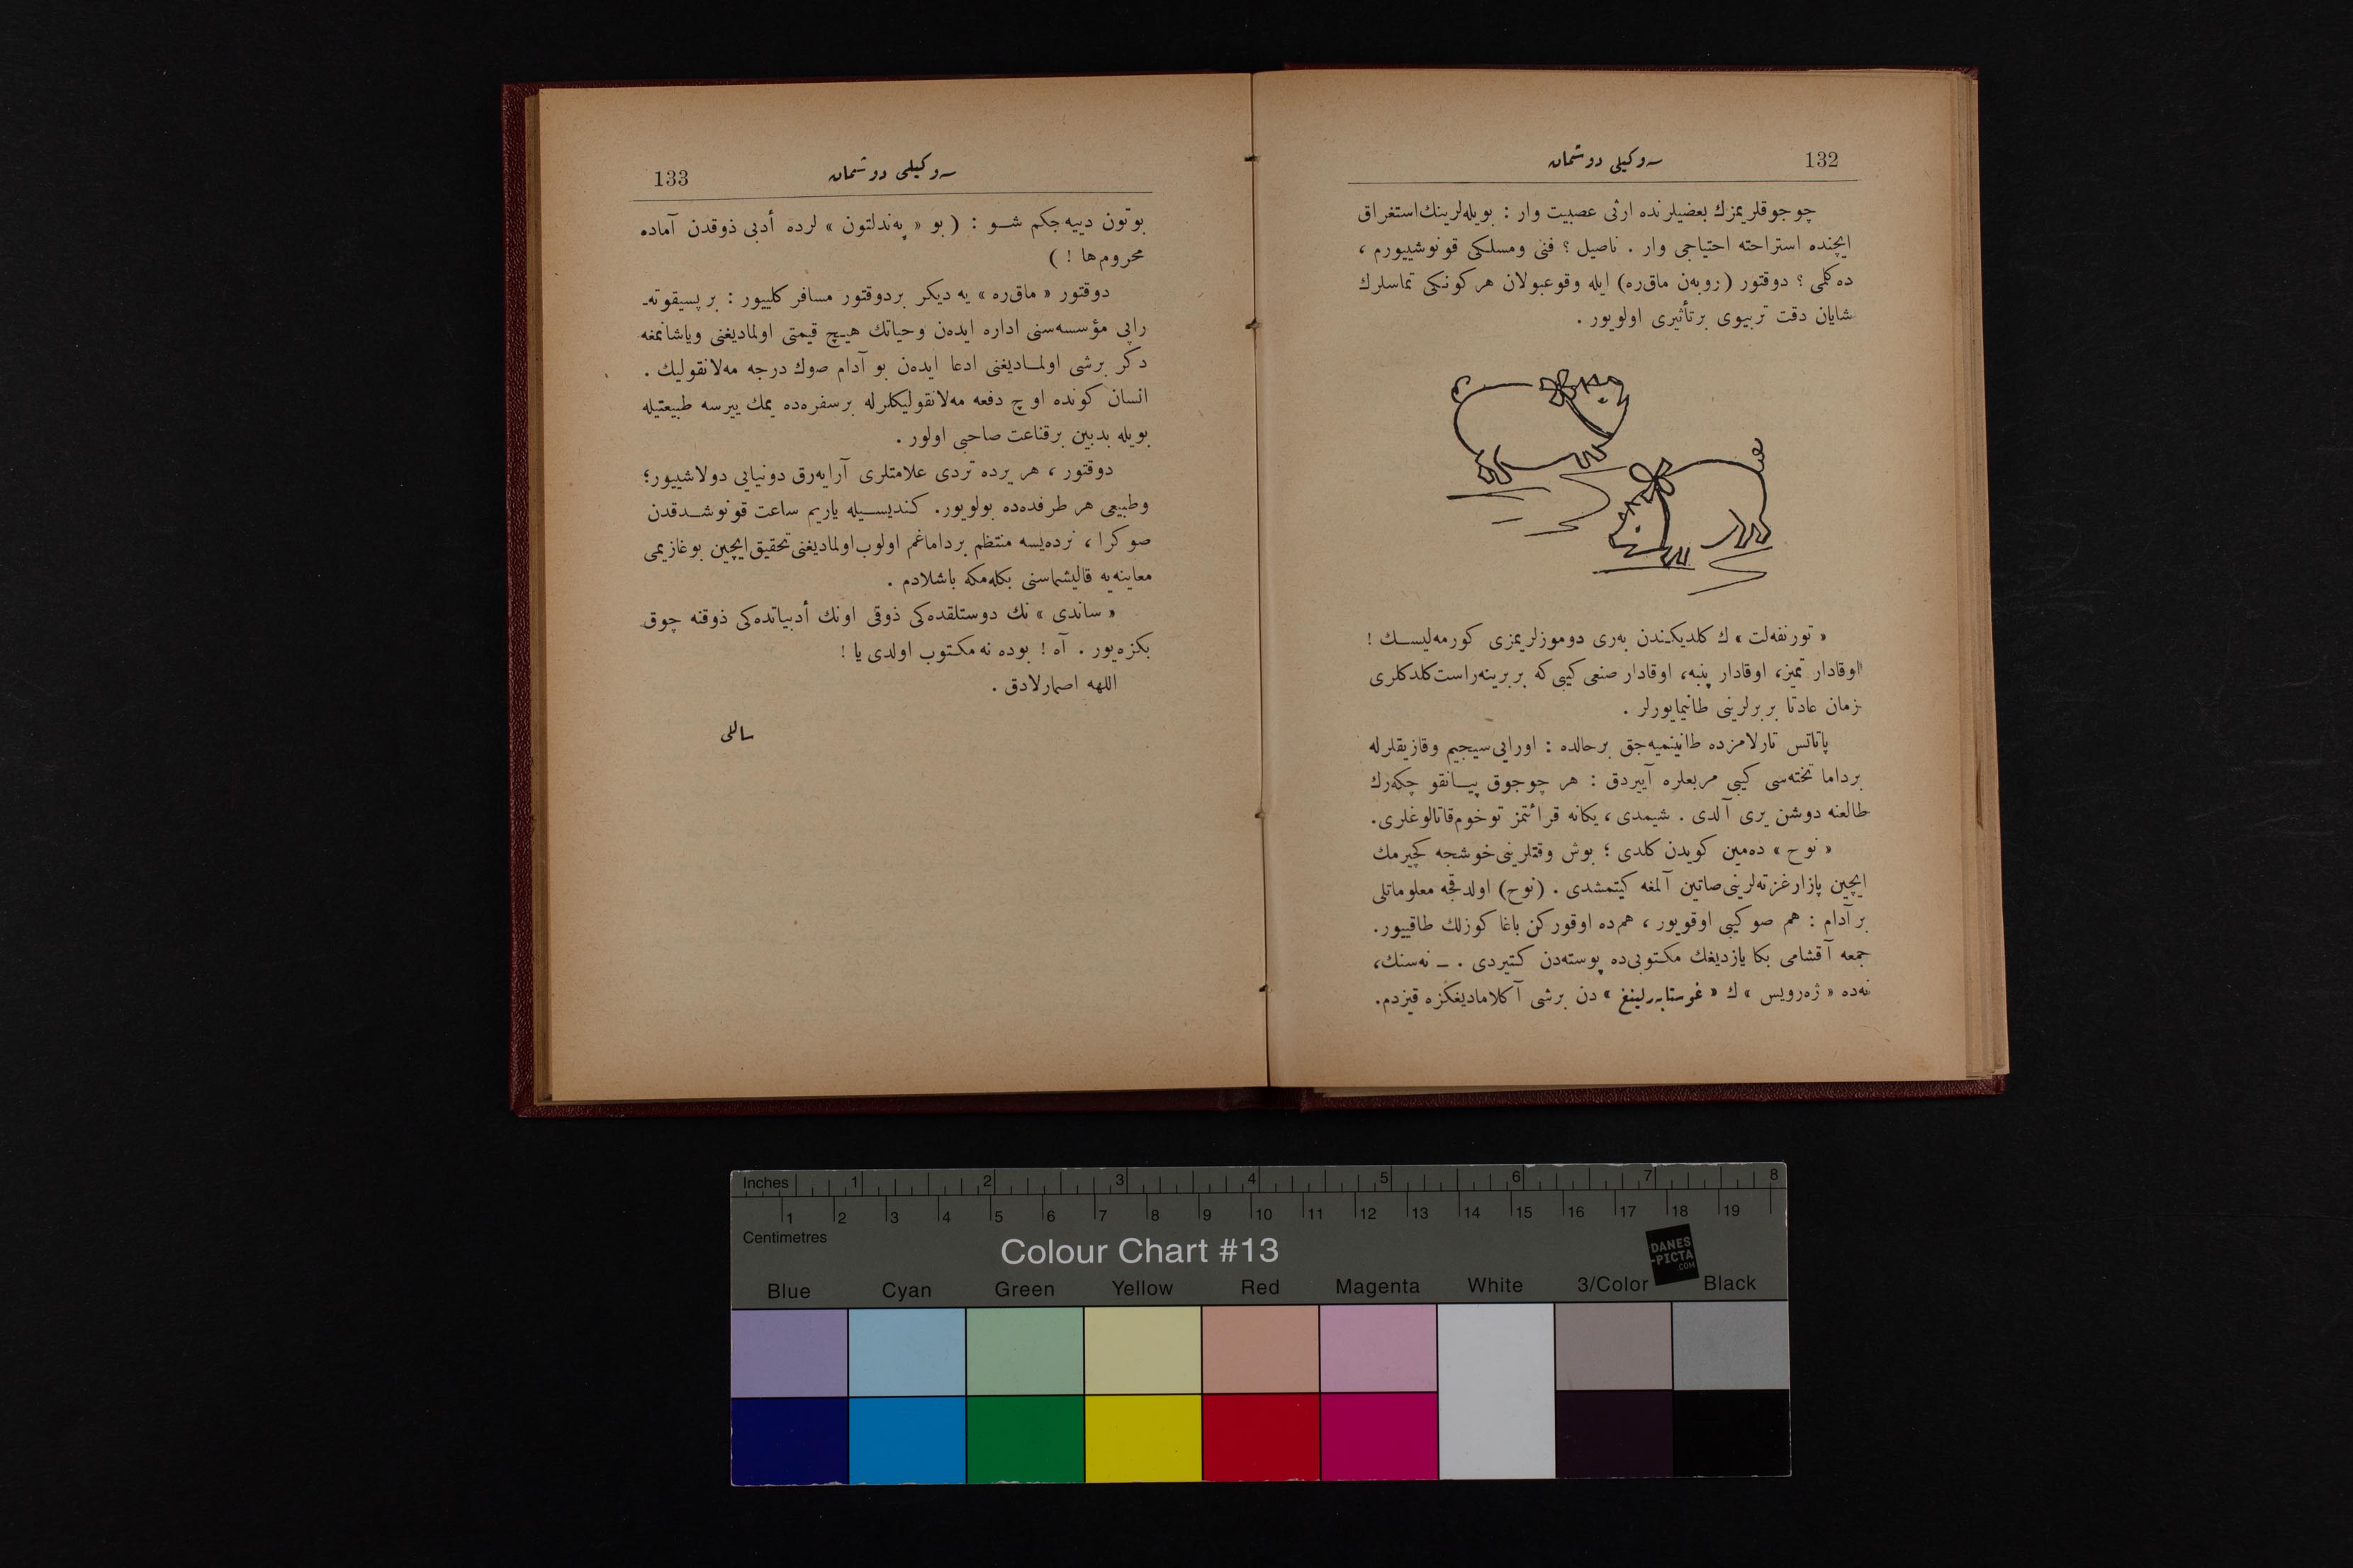 132
سوكیلی دوشمان
چوجوقلریمزك بعضیلرنده ارثی عصبیت وار : بویله‌لرینك استغراق
ایچنده استراحته احتیاجی وار . ناصیل ؟ فنی ومسلكی قونوشییورم ،
ده‌كلمی ؟ دوقتور (روبه‌ن ماق‌ره) ایله وقوعبولان هركونكی تماسلرك
شایان دقت تربیوی برتأثیری اولویور .
« تورنفه‌لت » ك كلدیكندن به‌ری دوموزلریمزی كورمه‌لیسك !
اوقادار تمیز، اوقادار پنبه، اوقادار صنعی كیبی‌كه بربرینه راست كلدكلری
زمان عادتا بربرلرینی طانیمایورلر .
پاتاتس تارلامزده طانینمیه‌جق برحالده : اورایی سیجیم وقازیقلرله
برداما تخته‌سی كیبی مربعلره آییردق : هر چوجوق پیانقو چكه‌رك
طالعنه دوشن یری آلدی . شیمدی ، یكانه قرائتمز توخوم قاتالوغلری.
« نوح » ده‌مین كویدن كلدی ؛ بوش وقتلرینی خوشجه كچیرمك
ایچین پازار غزته‌لرینی صاتین آلمغه كیتمشدی . (نوح) اولدقجه معلوماتلی
بر آدام : هم صو كیبی اوقویور ، هم‌ده اوقوركن باغا كوزلك طاقییور.
جمعه آقشامی بكا یازدیغك مكتوبی‌ده پوسته‌دن كتیردی . ــ نه‌سنك،
نه‌ده « ژه‌رویس » ك « غوستابه‌رلینغ » دن برشی آكلامادیغكزه قیزدم.
سوكیلی دوشمان
133
بوتون دییه‌جكم شو : ( بو « په‌ندلتون » لرده أدبی ذوقدن آماده
محروم‌ها ! )
دوقتور « ماق‌ره » یه دیكر بردوقتور مسافر كلییور : بر پسیقوته‌ـ
راپی مؤسسه‌سنی اداره ایده‌ن وحیاتك هیچ قیمتی اولمادیغنی ویاشانمغه
دكر برشی اولمادیغنی ادعا ایده‌ن بو آدام صوك درجه مه‌لانقولیك .
انسان كونده اوچ دفعه مه‌لانقولیكلرله برسفره‌ده یمك ییرسه طبیعتیله
بویله بدبین برقناعت صاحبی اولور .
دوقتور ، هر یرده تردی علامتلری آرایه‌رق دونیایی دولاشییور؛
وطبیعی هر طرفده‌ده بولویور. كندیسیله یاریم ساعت قونوشدقدن
صوكرا ، نرده‌یسه منتظم برداماغم اولوب اولمادیغنی تحقیق ایچین بوغازیمی
معاینه‌یه قالیشماسنی بكله‌مكه باشلادم .
« ساندی » نك دوستلقده‌كی ذوقی اونك أدبیاتده‌كی ذوقنه چوق
بكزه‌یور . آه ! بوده نه مكتوب اولدی یا !
اللهه اصمارلادق .
ساللی
Inches 1 2 3 4 5 6 7 8
1 2 3 4 5 6 7 8 9 10 11 12 13 14 15 16 17 18 19
Centimetres
Colour Chart #13
DANES
-PICTA
.COM
Blue Cyan Green Yellow Red Magenta White 3/Color Black